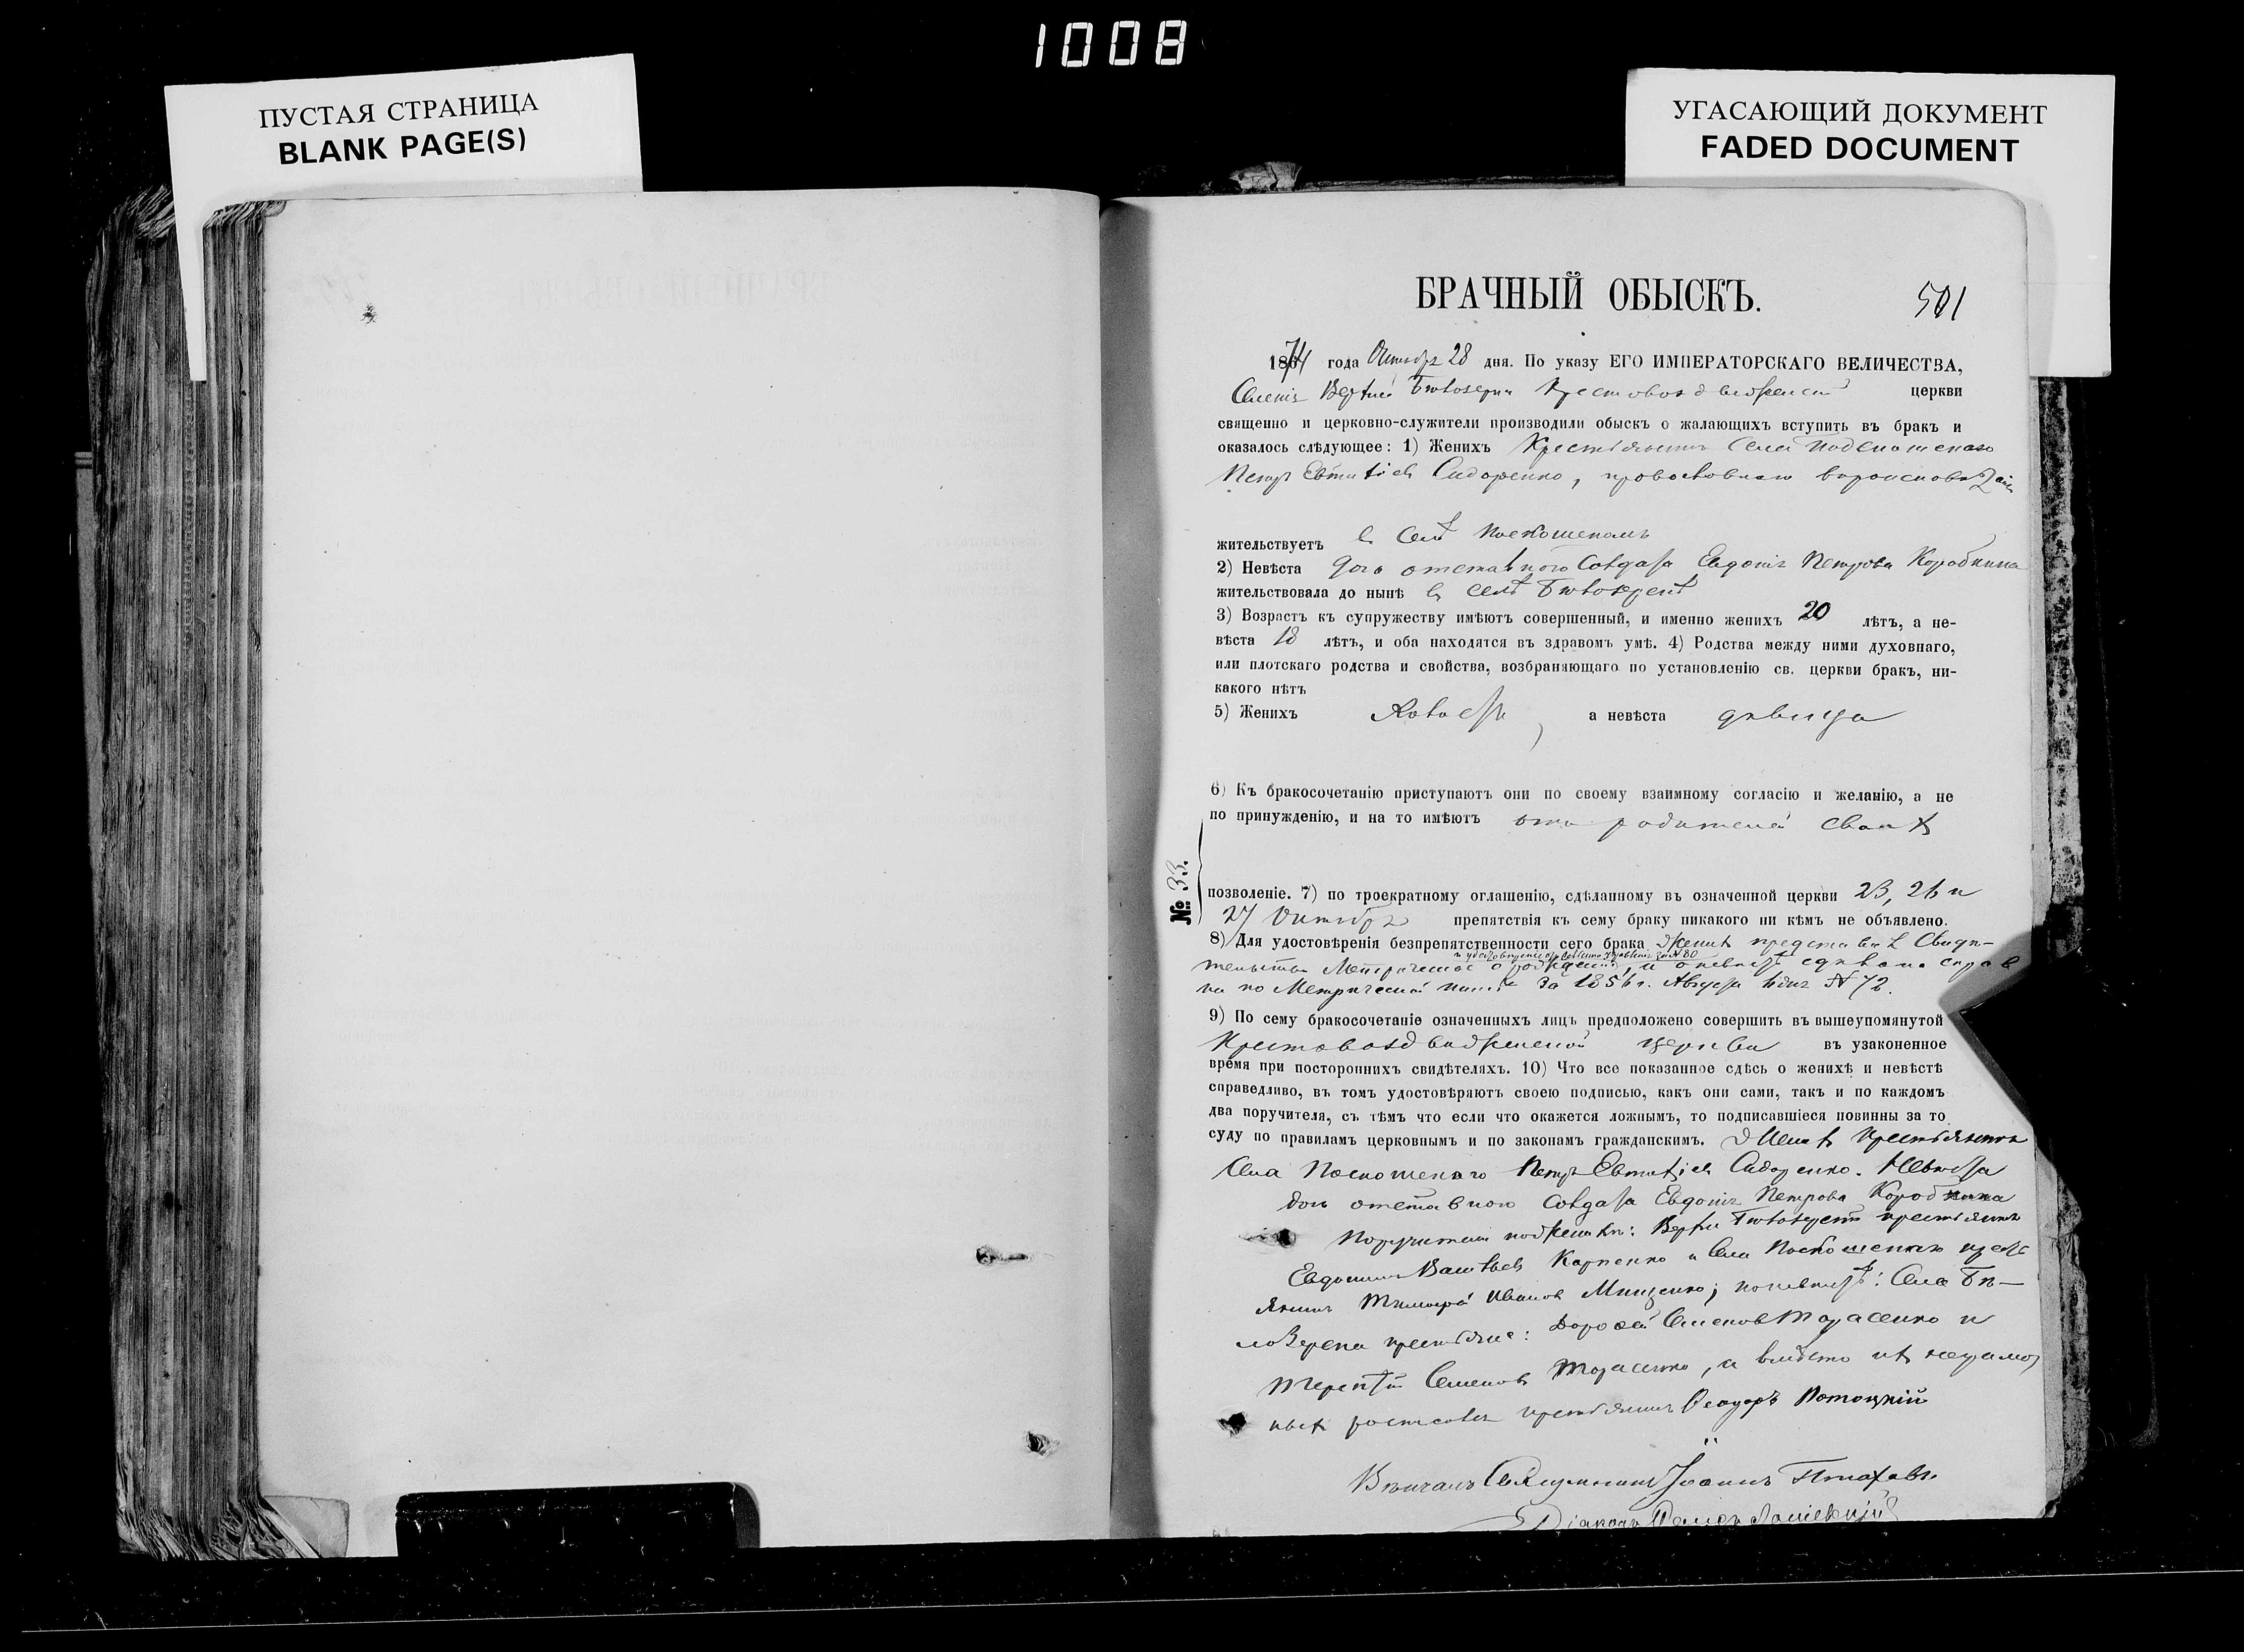 1008
ПУСТАЯ СТРАНИЦА
BLANK PAGE(S)
УГАСАЮЩИЙ ДОКУМЕНТ
FADED DOCUMENT
БРАЧНЫЙ ОБЫСКЪ.
501
1874 года Октября 28 дня. По указу ЕГО ИМПЕРАТОРСКАГО ВЕЛИЧЕСТВА,
Селенія Верхней Бѣлозерки Крестовоздвиженской церкви
священно и церковно-служители производили обыскъ о жалающихъ вступить въ бракъ и
оказалось слѣдующее: 1) Женихъ Крестьянинъ Села
Петръ Евтихіевъ Сидоренко, православнаго вѣроисповѣданія
жительствуетъ в Селѣ
2) Невѣста дочь отставного Солдата Евдокія Петрова Коробкина
жительствовала до нынѣ в селѣ Бѣлозеркѣ
3) Возрастъ къ супружеству имѣютъ совершенный, и именно женихъ 20 лѣтъ, а не-
вѣста 18 лѣтъ, и оба находятся въ здравомъ умѣ. 4) Родства между ними духовнаго,
или плотскаго родства и свойства, возбраняющаго по установленію св. церкви бракъ, ни-
какого нѣтъ
5) Женихъ Холостъ, а невѣста дѣвица
6) Къ бракосочетанію приступаютъ они по своему взаимному согласію и желанію, а не
по принужденію, и на то имѣютъ отъ родителей своихъ
№ 33.
позволеніе. 7) по троекратному оглашенію, сдѣланному въ означенной церкви 23, 26 и
27 Октября препятствія къ сему браку никакого ни кѣмъ не объявлено.
8) Для удостовѣренія безпрепятственности сего брака Женихъ представилъ Свидѣ-
тельство Метрическое о рожденіи, и о невѣстѣ сдѣлана справ
ка по Метрической книгѣ за 1856 г. Августа № 72.
9) По сему бракосочетаніе означенныхъ лицъ предположено совершить въ вышеупомянутой
Крестовоздвиженской церкви въ узаконенное
время при постороннихъ свидѣтеляхъ. 10) Что все показанное сдѣсь о женихѣ и невѣстѣ
справедливо, въ томъ удостовѣряютъ своею подписью, какъ они сами, такъ и по каждомъ
два поручителя, съ тѣмъ что если что окажется ложнымъ, то подписавшіеся повинны за то
суду по правиламъ церковнымъ и по законамъ гражданскимъ. Женихъ Крестьянинъ
Села Петръ Евтихіевъ Сидоренко. Невѣста
дочь отставного Солдата Евдокія Петрова Коробкина
Поручители по женихѣ: Верхней Бѣлозерки крестьянинъ
Евдокимъ Карпенко и Села крестъ
янинъ Тимофей Ивановъ Мищенко; по невѣстѣ: Села Бѣ-
лозерки крестьяне: Дорофей Семеновъ Тарасенко и
Терентій Семеновъ Тарасенко, а вмѣсто ихъ неграмот
ныхъ росписался крестьянинъ Феодоръ Потоцкій
Вѣнчалъ Священникъ Іоаннъ
Діаконъ